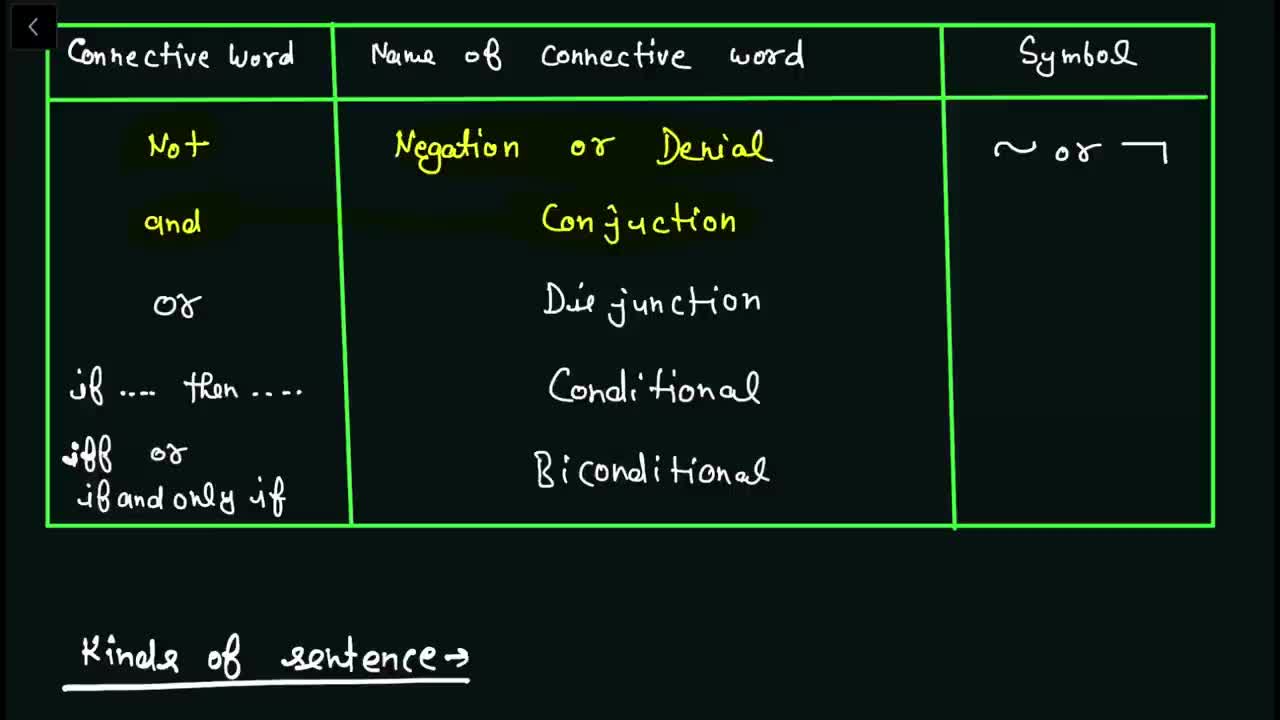 Connective Word Name of connective word Symbol
Not Negation or Denial ~ or ¬
and Conjuction
or Disjunction
if .... then ..... Conditional
iff or
if and only if Biconditional
Kinds of sentence →